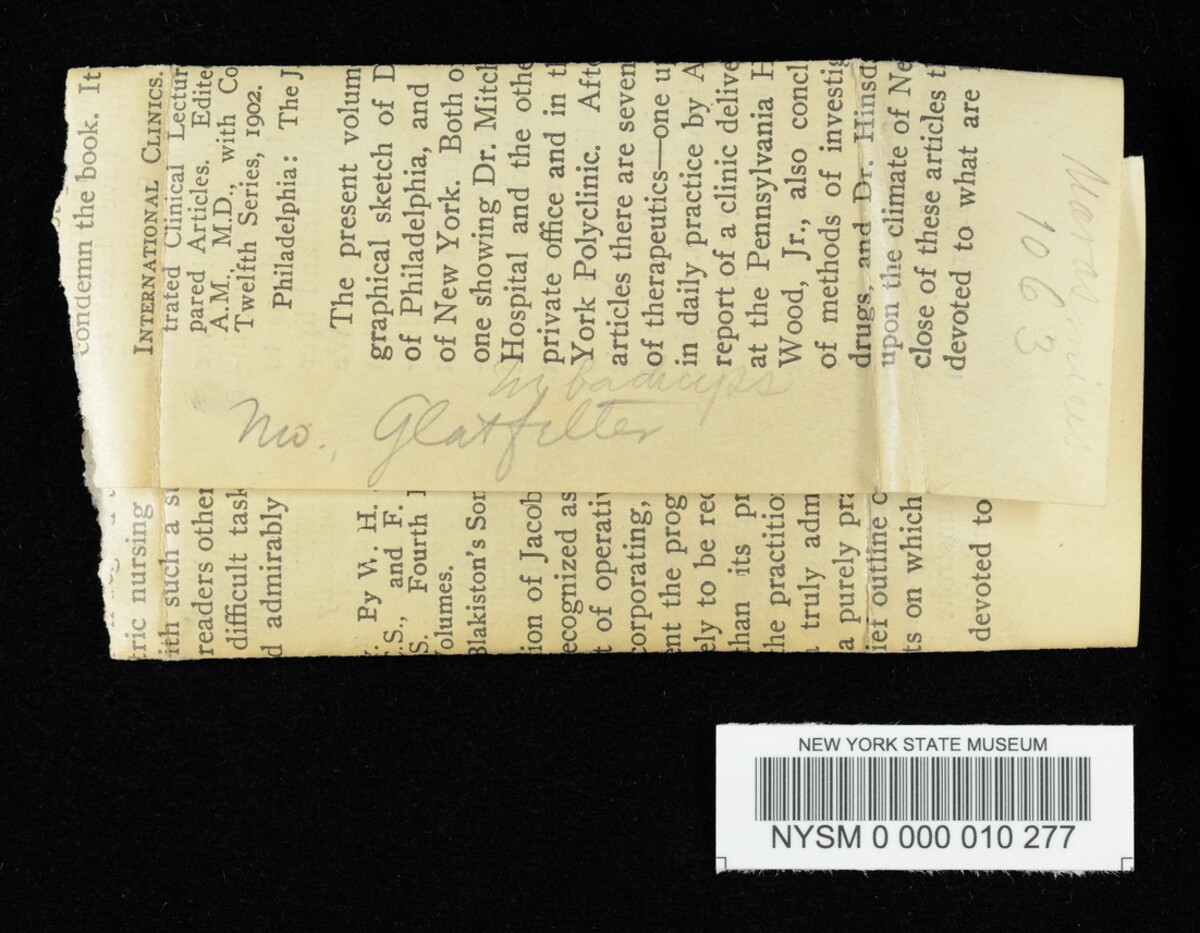 condemn the book. It
INTERNATIONAL CLINICS.
trated Clinical Lectur
pared Articles. Edite
A.M., M.D., with Co
Twelfth Series, 1902.
Philadelphia: The J.
The present volum
graphical sketch of D
of Philadelphia, and
of New York. Both o
one showing Dr. Mitch
Hospital and the othe
private office and in th
York Polyclinic. Afte
articles there are seven
of therapeutics—one up
in daily practice by A
report of a clinic delive
at the Pennsylvania H
Wood, Jr., also concl
of methods of investig
drugs, and Dr. Hinsd
upon the climate of Ne
close of these articles th
devoted to what are
1063
Mo. Glatfelter
tric nursing
ith such a s
readers other
difficult task
d admirably
By W. H.
C.S., and F.
S. Fourth
olumes.
Blakiston's Son
ion of Jacob
ecognized as
t of operativ
corporating,
ent the prog
ely to be rec
than its pr
he practitio
truly adm
a purely pra
ief outline o
ts on which
devoted to
NEW YORK STATE MUSEUM
NYSM 0 000 010 277